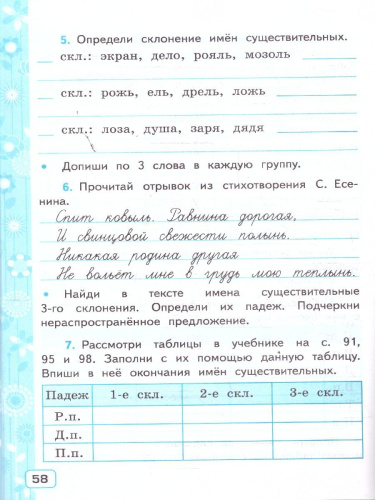 5. Определи склонение имён существительных.
скл.: экран, дело, рояль, мозоль
скл.: рожь, ель, дрель, ложь
скл.: лоза, душа, заря, дядя
• Допиши по 3 слова в каждую группу.
6. Прочитай отрывок из стихотворения С. Есе-
нина.
Спит ковыль. Равнина дорогая,
И свинцовой свежести полынь.
Никакая родина другая
Не вольёт мне в грудь мою теплынь.
• Найди в тексте имена существительные
3-го склонения. Определи их падеж. Подчеркни
нераспространённое предложение.
7. Рассмотри таблицы в учебнике на с. 91,
95 и 98. Заполни с их помощью данную таблицу.
Впиши в неё окончания имён существительных.
Падеж 1-е скл. 2-е скл. 3-е скл.
Р.п.
Д.п.
П.п.
58